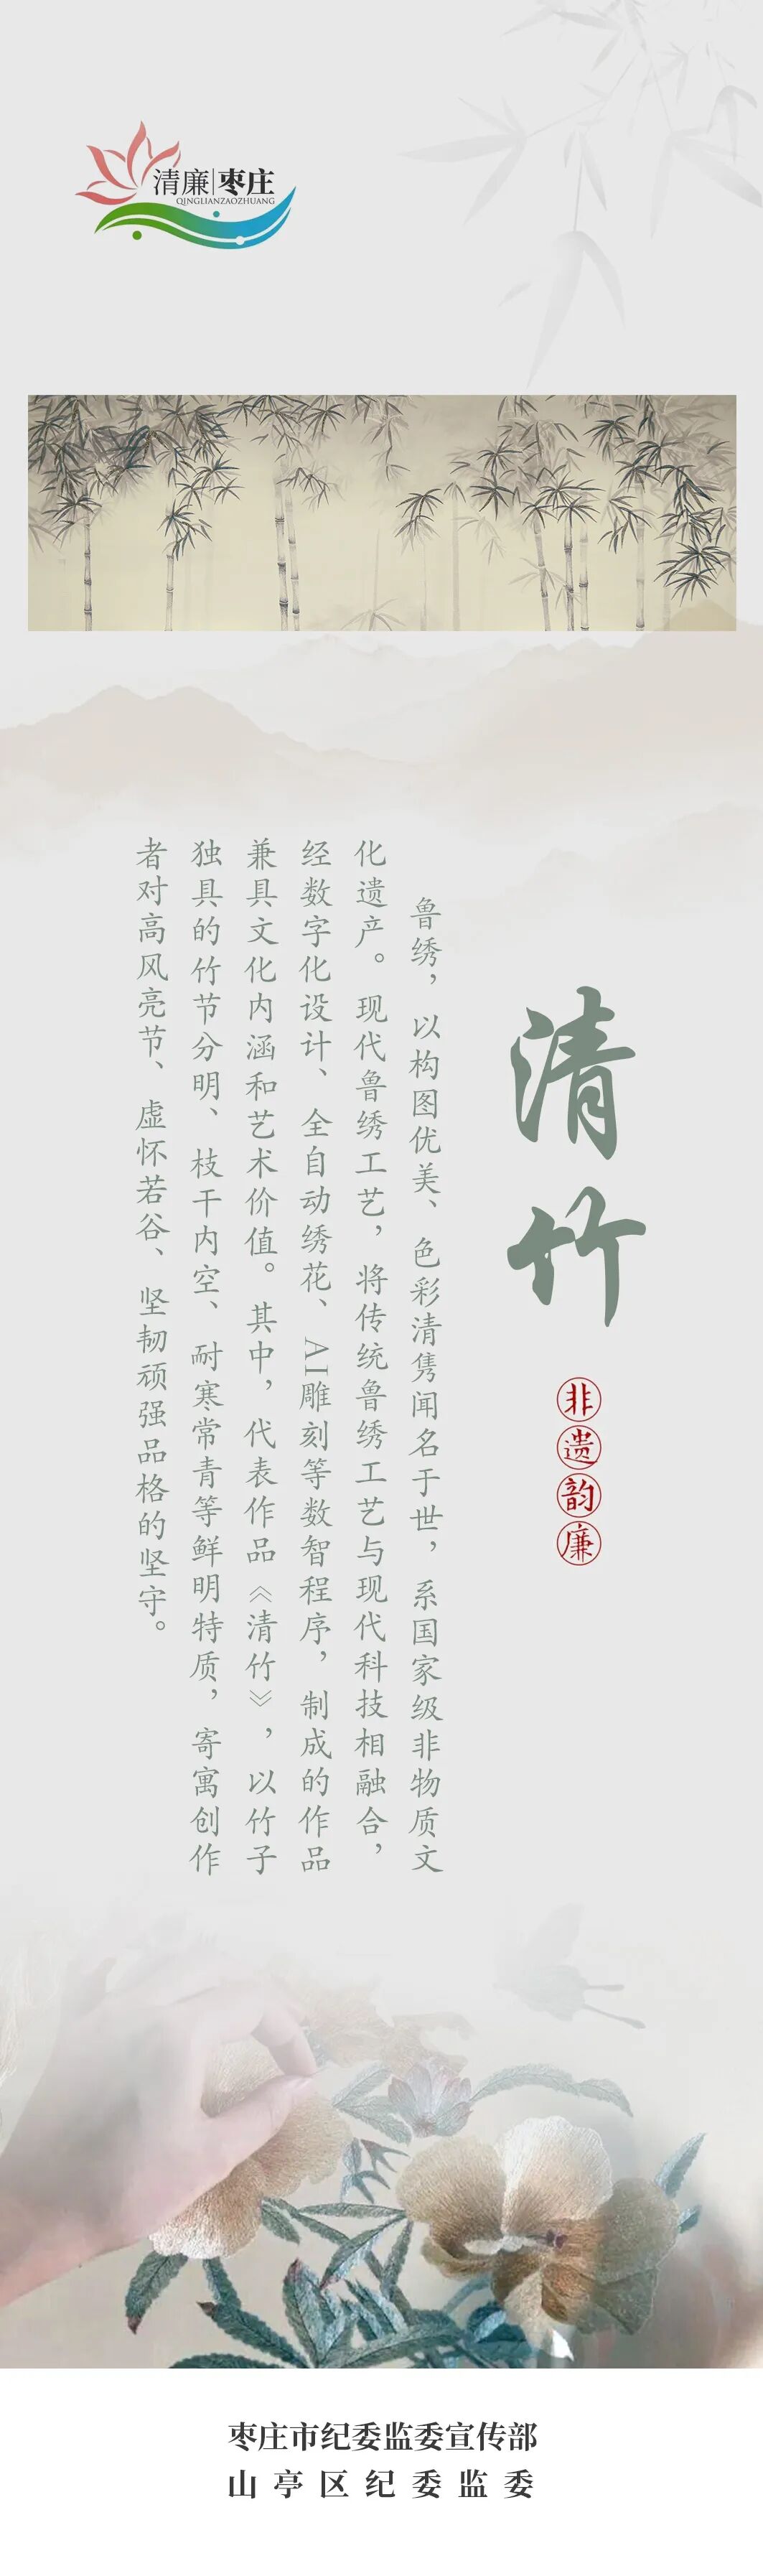 清廉|枣庄
QINGLIANZAOZHUANG
清竹
非遗韵廉
鲁绣，以构图优美、色彩清隽闻名于世，系国家级非物质文
化遗产。现代鲁绣工艺，将传统鲁绣工艺与现代科技相融合，
经数字化设计、全自动绣花、AI雕刻等数智程序，制成的作品
兼具文化内涵和艺术价值。其中，代表作品《清竹》，以竹子
独具的竹节分明、枝干内空、耐寒常青等鲜明特质，寄寓创作
者对高风亮节、虚怀若谷、坚韧顽强品格的坚守。
枣庄市纪委监委宣传部
山亭区纪委监委